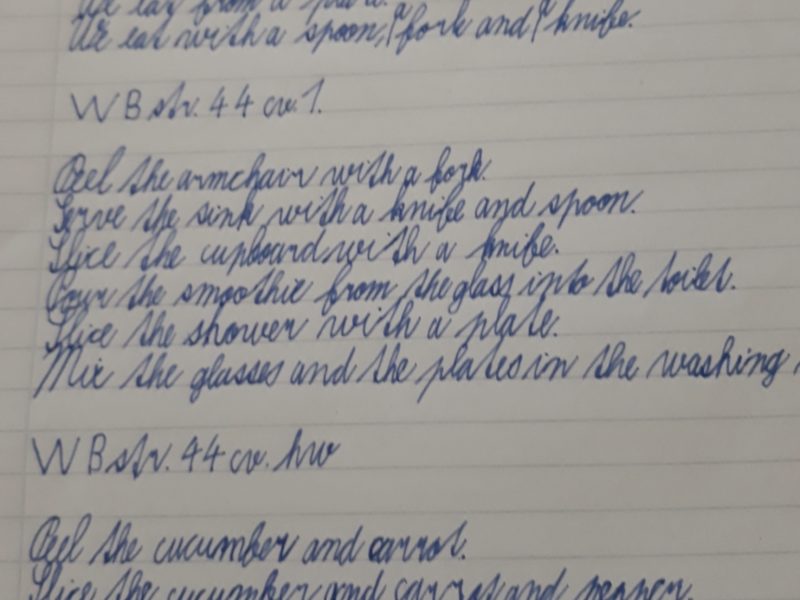 We eat from a plate.
We eat with a spoon, a fork and a knife.
WB str. 44 cv. 1.
Peel the armchair with a fork.
Serve the sink with a knife and spoon.
Slice the cupboard with a knife.
Pour the smoothie from the glass into the toilet.
Slice the shower with a plate.
Mix the glasses and the plates in the washing
WB str. 44 cv. hw
Peel the cucumber and carrot.
Slice the cucumber and carrot and pepper.